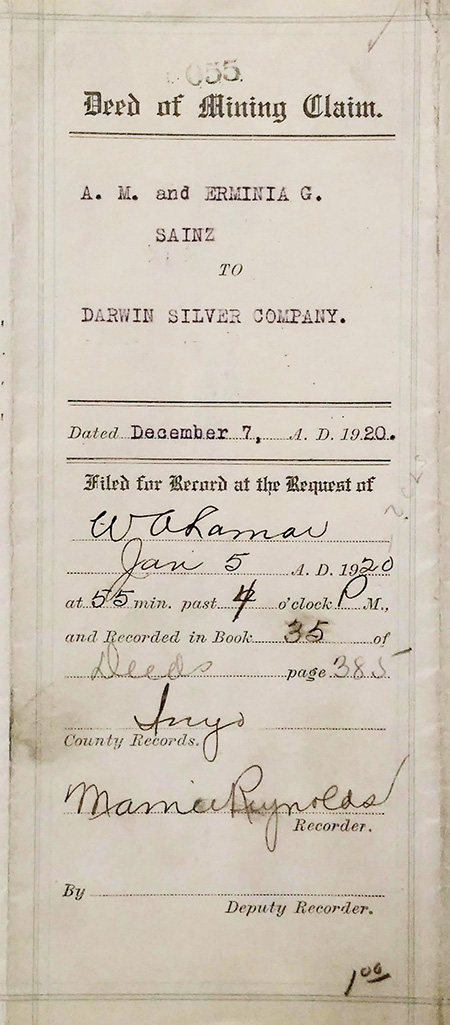 055.
Deed of Mining Claim.
A. M. and ERMINIA G.
SAINZ
TO
DARWIN SILVER COMPANY.
Dated December 7, A. D. 1920.
Filed for Record at the Request of
W
Jan 5 A. D. 1920
at 55 min. past 4 o'clock P M.,
and Recorded in Book 35 of
Deeds page 385
Inyo
County Records.
Mamie Reynolds
Recorder.
By
Deputy Recorder.
1 00